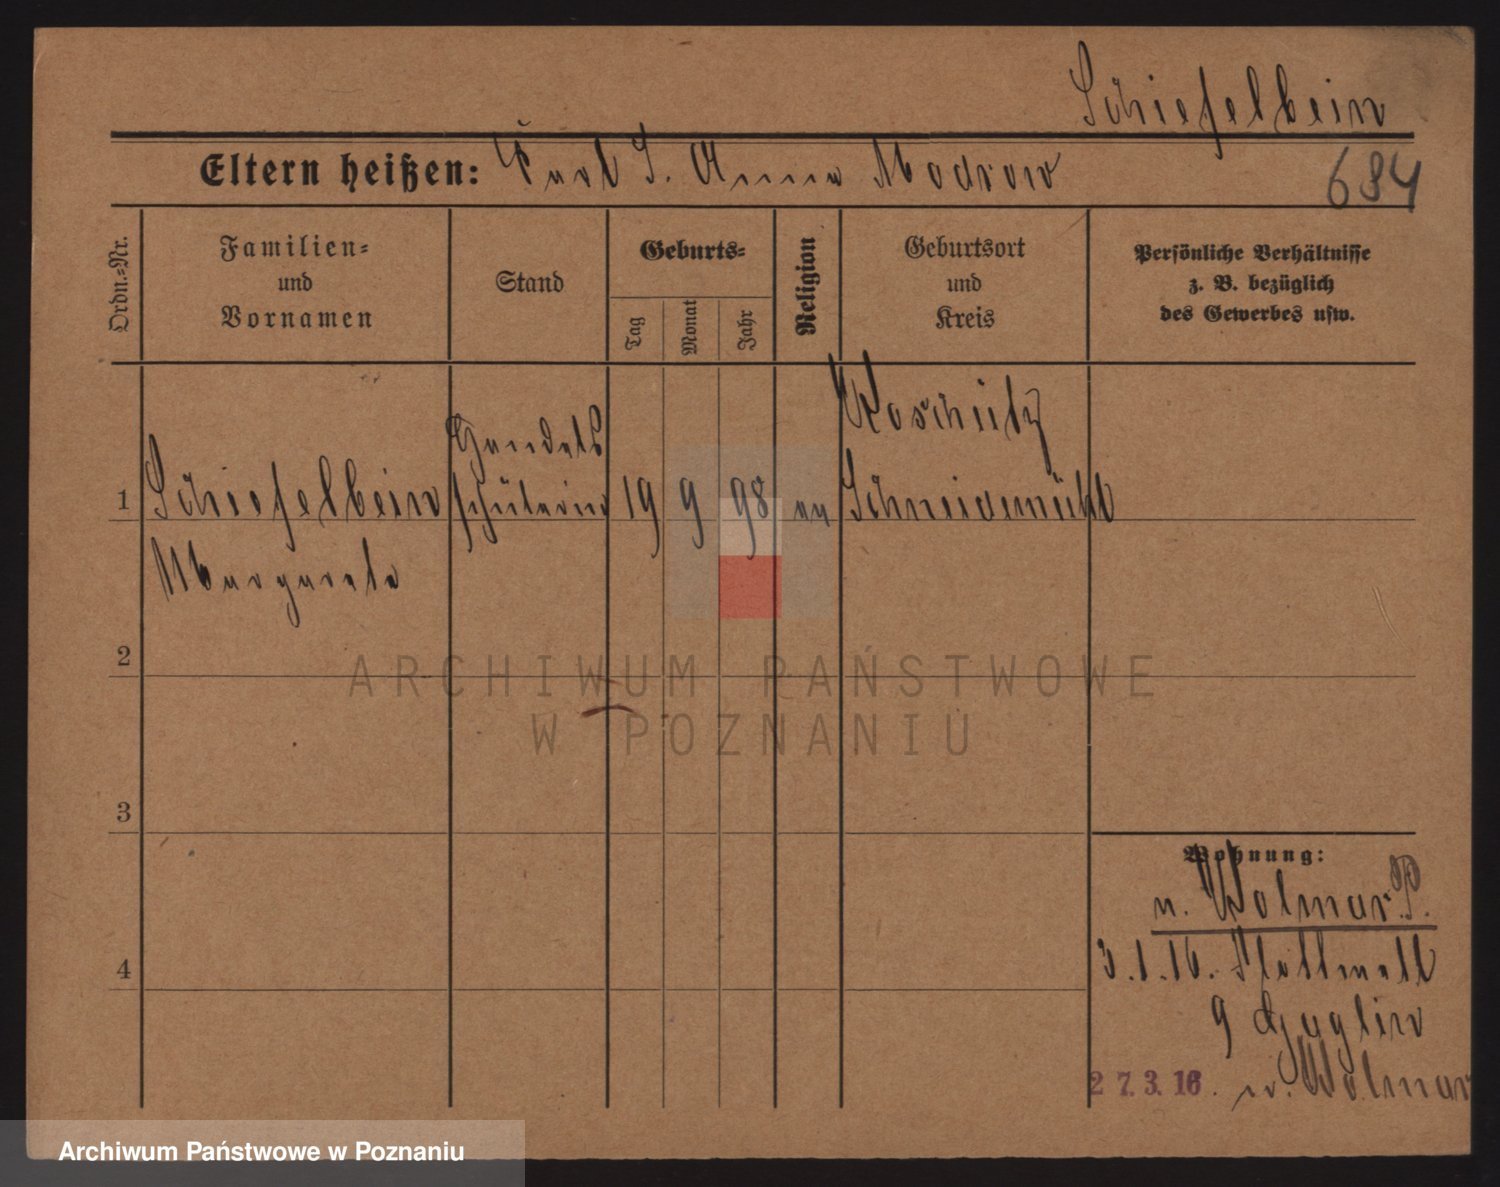 Schiefelbein
Eltern heißen: Karl S. Anna Modrow
684
Ordn.-Nr.
Familien-
und
Vornamen
Stand
Geburts-
Tag
Monat
Jahr
Religion
Geburtsort
und
Kreis
Persönliche Verhältnisse
z. B. bezüglich
des Gewerbes usw.
1
Schiefelbein
Margarete
Handels
schülerin
19
9
98
ev
Koschütz
Schneidemühl
2
3
4
ARCHIWUM PAŃSTWOWE
W POZNANIU
Wohnung:
n. Kolmar P.
3.1.16. Flottwell
9
27.3.16. n. Kolmar
Archiwum Państwowe w Poznaniu